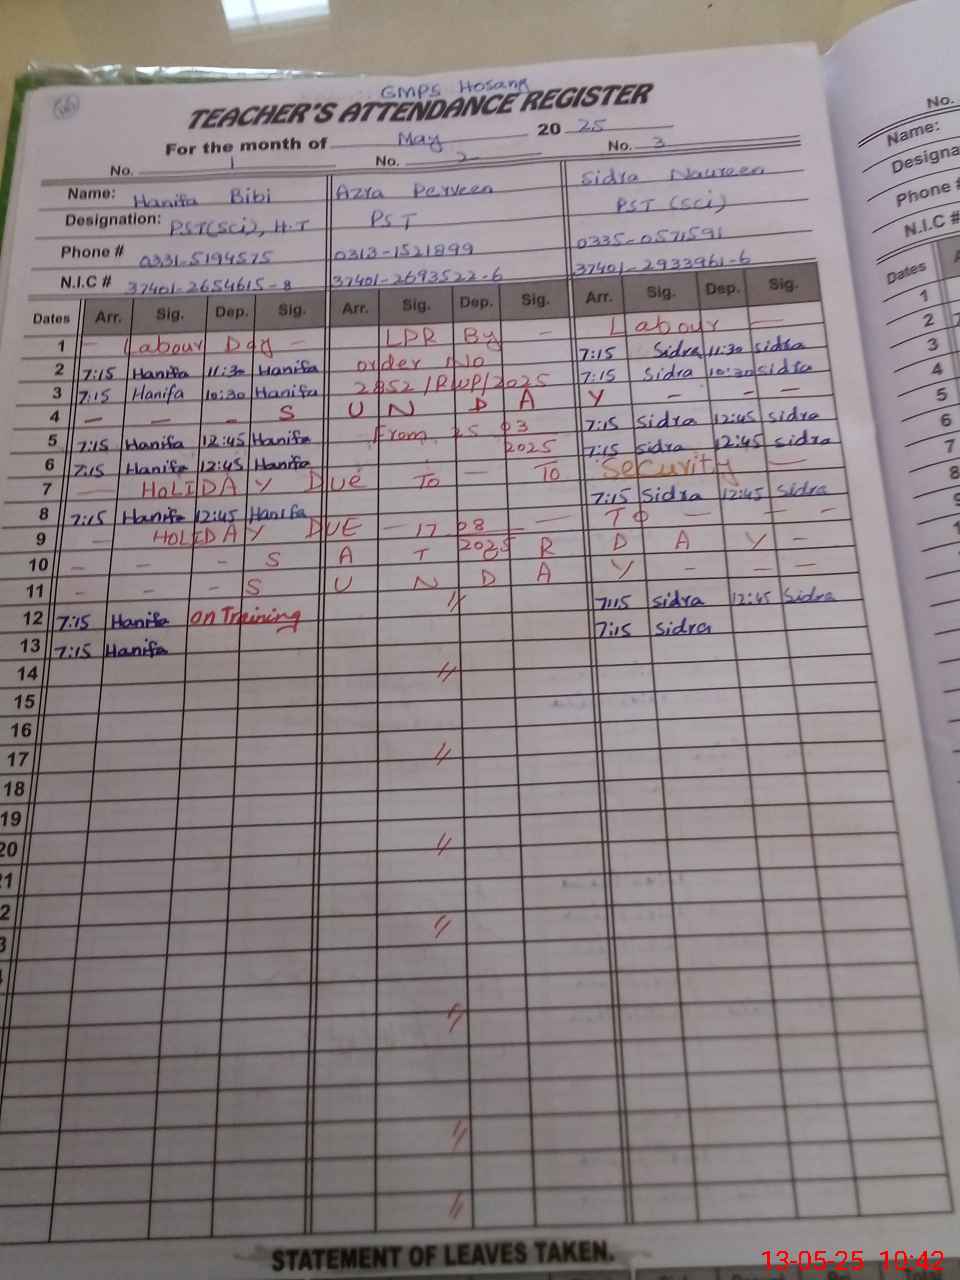 GMPS Hosang
TEACHER'S ATTENDANCE REGISTER
For the month of May 20 25
No. 1 No. 2 No. 3
Name: Hanifa Bibi Azra Perveen Sidra Naureen
Designation: PST(Sci), H.T PST PST (Sci)
Phone # 0331-5194575 0313-1521899 0335-0571591
N.I.C # 37401-2654615-8 37401-2693522-6 37401-2933961-6
Dates Arr. Sig. Dep. Sig. Arr. Sig. Dep. Sig. Arr. Sig. Dep. Sig.
1 - Labour Day - LPR By - Labour -
2 7:15 Hanifa 11:30 Hanifa order No 7:15 Sidra 11:30 sidra
3 7:15 Hanifa 10:30 Hanifa 2852/RWP/2025 7:15 Sidra 10:30 sidra
4 - - - S U N D A Y - - -
5 7:15 Hanifa 12:45 Hanifa From 25 03 7:15 sidra 12:45 sidra
6 7:15 Hanifa 12:45 Hanifa 2025 7:15 sidra 12:45 sidra
7 - HoLIDAY Due To - To Security -
8 7:15 Hanifa 12:45 Hanifa 7:15 Sidra 12:45 Sidra
9 - HoLIDAY DUE - 17 08 - To - - -
2025
10 - - - S A T R D A Y -
11 - - - S U N D A Y - - -
12 7:15 Hanifa on Training " 7:15 sidra 12:45 Sidra
13 7:15 Hanifa 7:15 sidra
14 "
15
16
17 "
18
19
20 "
1
2
3 "
"
"
"
STATEMENT OF LEAVES TAKEN.
13-05-25 10:42
No.
Name:
Designa
Phone #
N.I.C #
Dates A
1
2 7
3
4
5
6
7
8